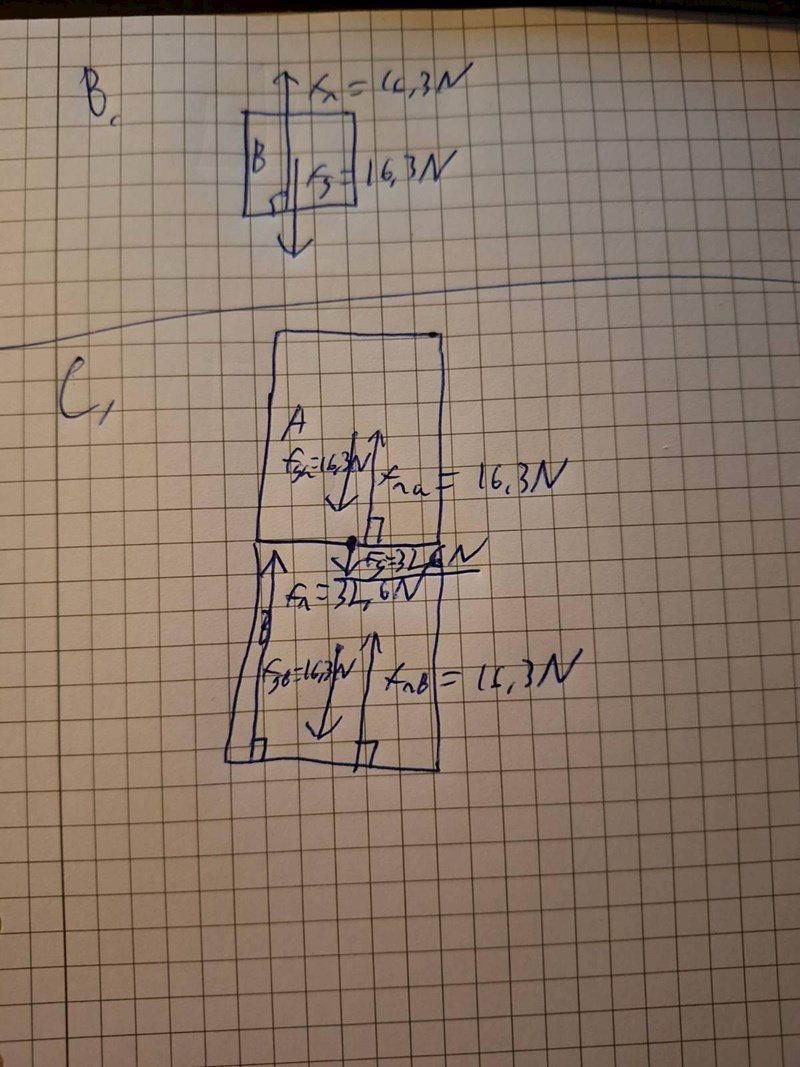 B.
Fn = 16,3N
B
Fg = 16,3N
C,
A
Fga=16,3N
Fna = 16,3N
Fg=32,6N
Fn=32,6N
B
FgB=16,3N
FnB = 16,3N